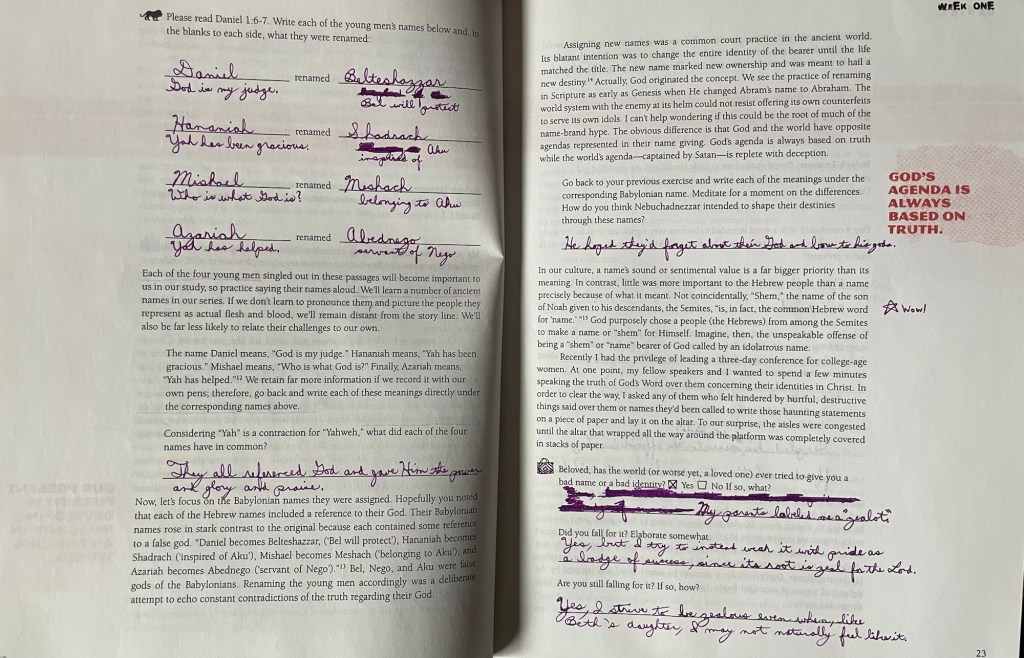 Please read Daniel 1:6-7. Write each of the young men's names below and, in
the blanks to each side, what they were renamed:
Daniel renamed Belteshazzar
God is my judge. Bel will protect
Hananiah renamed Shadrach
Yah has been gracious. inspired of Aku
Mishael renamed Meshach
Who is what God is? belonging to Aku
Azariah renamed Abednego
Yah has helped. servant of Nego
Each of the four young men singled out in these passages will become important to
us in our study, so practice saying their names aloud. We'll learn a number of ancient
names in our series. If we don't learn to pronounce them and picture the people they
represent as actual flesh and blood, we'll remain distant from the story line. We'll
also be far less likely to relate their challenges to our own.
The name Daniel means, "God is my judge." Hananiah means, "Yah has been
gracious." Mishael means, "Who is what God is?" Finally, Azariah means,
"Yah has helped."12 We retain far more information if we record it with our
own pens; therefore, go back and write each of these meanings directly under
the corresponding names above.
Considering "Yah" is a contraction for "Yahweh," what did each of the four
names have in common?
They all referenced God and gave Him the power
and glory and praise.
Now, let's focus on the Babylonian names they were assigned. Hopefully you noted
that each of the Hebrew names included a reference to their God. Their Babylonian
names rose in stark contrast to the original because each contained some reference
to a false god. "Daniel becomes Belteshazzar, ('Bel will protect'), Hananiah becomes
Shadrach ('inspired of Aku'), Mishael becomes Meshach ('belonging to Aku'), and
Azariah becomes Abednego ('servant of Nego')."13 Bel, Nego, and Aku were false
gods of the Babylonians. Renaming the young men accordingly was a deliberate
attempt to echo constant contradictions of the truth regarding their God.
WEEK ONE
Assigning new names was a common court practice in the ancient world.
Its blatant intention was to change the entire identity of the bearer until the life
matched the title. The new name marked new ownership and was meant to hail a
new destiny.14 Actually, God originated the concept. We see the practice of renaming
in Scripture as early as Genesis when He changed Abram's name to Abraham. The
world system with the enemy at its helm could not resist offering its own counterfeits
to serve its own idols. I can't help wondering if this could be the root of much of the
name-brand hype. The obvious difference is that God and the world have opposite
agendas represented in their name giving. God's agenda is always based on truth
while the world's agenda—captained by Satan—is replete with deception.
GOD'S
AGENDA IS
ALWAYS
BASED ON
TRUTH.
Go back to your previous exercise and write each of the meanings under the
corresponding Babylonian name. Meditate for a moment on the differences.
How do you think Nebuchadnezzar intended to shape their destinies
through these names?
He hoped they'd forget about their God and bow to his gods.
In our culture, a name's sound or sentimental value is a far bigger priority than its
meaning. In contrast, little was more important to the Hebrew people than a name
precisely because of what it meant. Not coincidentally, "Shem," the name of the son
of Noah given to his descendants, the Semites, "is, in fact, the common Hebrew word
for 'name.' "15 God purposely chose a people (the Hebrews) from among the Semites
to make a name or "shem" for Himself. Imagine, then, the unspeakable offense of
being a "shem" or "name" bearer of God called by an idolatrous name.
Wow!
Recently I had the privilege of leading a three-day conference for college-age
women. At one point, my fellow speakers and I wanted to spend a few minutes
speaking the truth of God's Word over them concerning their identities in Christ. In
order to clear the way, I asked any of them who felt hindered by hurtful, destructive
things said over them or names they'd been called to write those haunting statements
on a piece of paper and lay it on the altar. To our surprise, the aisles were congested
until the altar that wrapped all the way around the platform was completely covered
in stacks of paper.
Beloved, has the world (or worse yet, a loved one) ever tried to give you a
bad name or a bad identity? ☒ Yes ☐ No If so, what?
My parents labeled me a "zealot"
Did you fall for it? Elaborate somewhat.
Yes, but I try to instead wear it with pride as
a badge of success, since its root is zeal for the Lord.
Are you still falling for it? If so, how?
Yes, I strive to be zealous even when, like
Beth's daughter, I may not naturally feel like it.
23